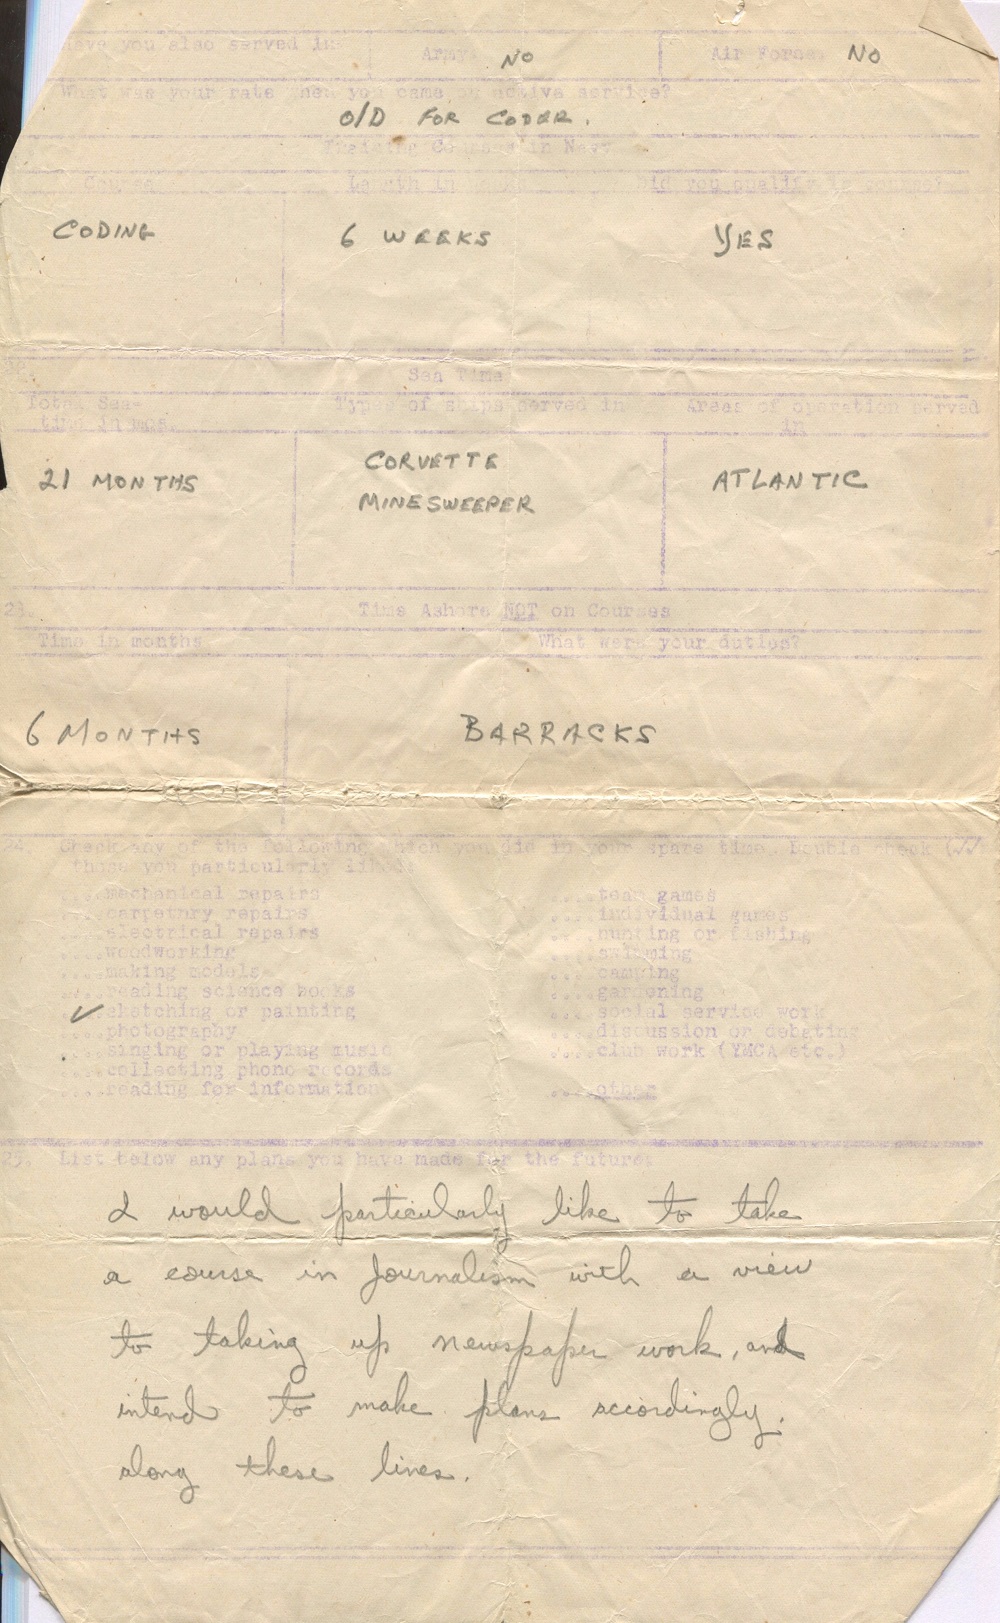 Have you also served in: Army: NO Air Force: NO
What was your rate when you came on active service?
O/D FOR CODER.
Training Courses in Navy
Course Length in Did you qualify
CODING 6 WEEKS YES
Sea Time
Total Sea- Types of ships served in Areas of operation served
time in mos. in
21 MONTHS CORVETTE ATLANTIC
MINESWEEPER
23. Time Ashore NOT on Courses
Time in months What were your duties?
6 MONTHS BARRACKS
24. Check any of the following which you did in your spare time. Double check (√√
those you particularly liked:
....mechanical repairs ....team games
....carpentry repairs ....individual games
....electrical repairs ....hunting or fishing
....woodworking ....swimming
....making models ....camping
....reading science books ....gardening
✓....sketching or painting ....social service work
....photography ....discussion or debating
....singing or playing music ....club work (YMCA etc.)
....collecting phono records
....reading for information ....other
25. List below any plans you have made for the future:
I would particularly like to take
a course in Journalism with a view
to taking up newspaper work, and
intend to make plans accordingly.
along these lines.